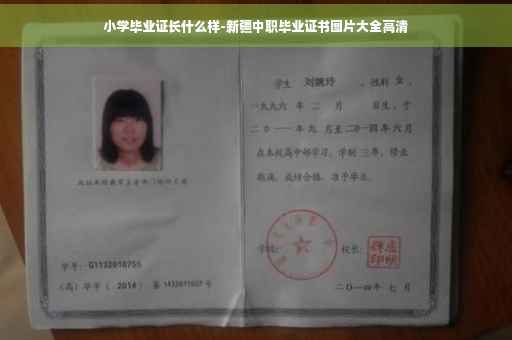 小学毕业证长什么样-新疆中职毕业证书图片大全高清
学生 刘婉玲 ，性别 女 ，
一九九六 年 二 月 日生，于
二〇一一 年 九 月至 二〇一四 年 六 月
在本校高中部学习，学制 三年，修业
期满，成绩合格，准予毕业。
学校：
校长：
学号：G1132010755
（高）毕字（ 2014 ）第 1432011027 号
二〇一四年 七 月